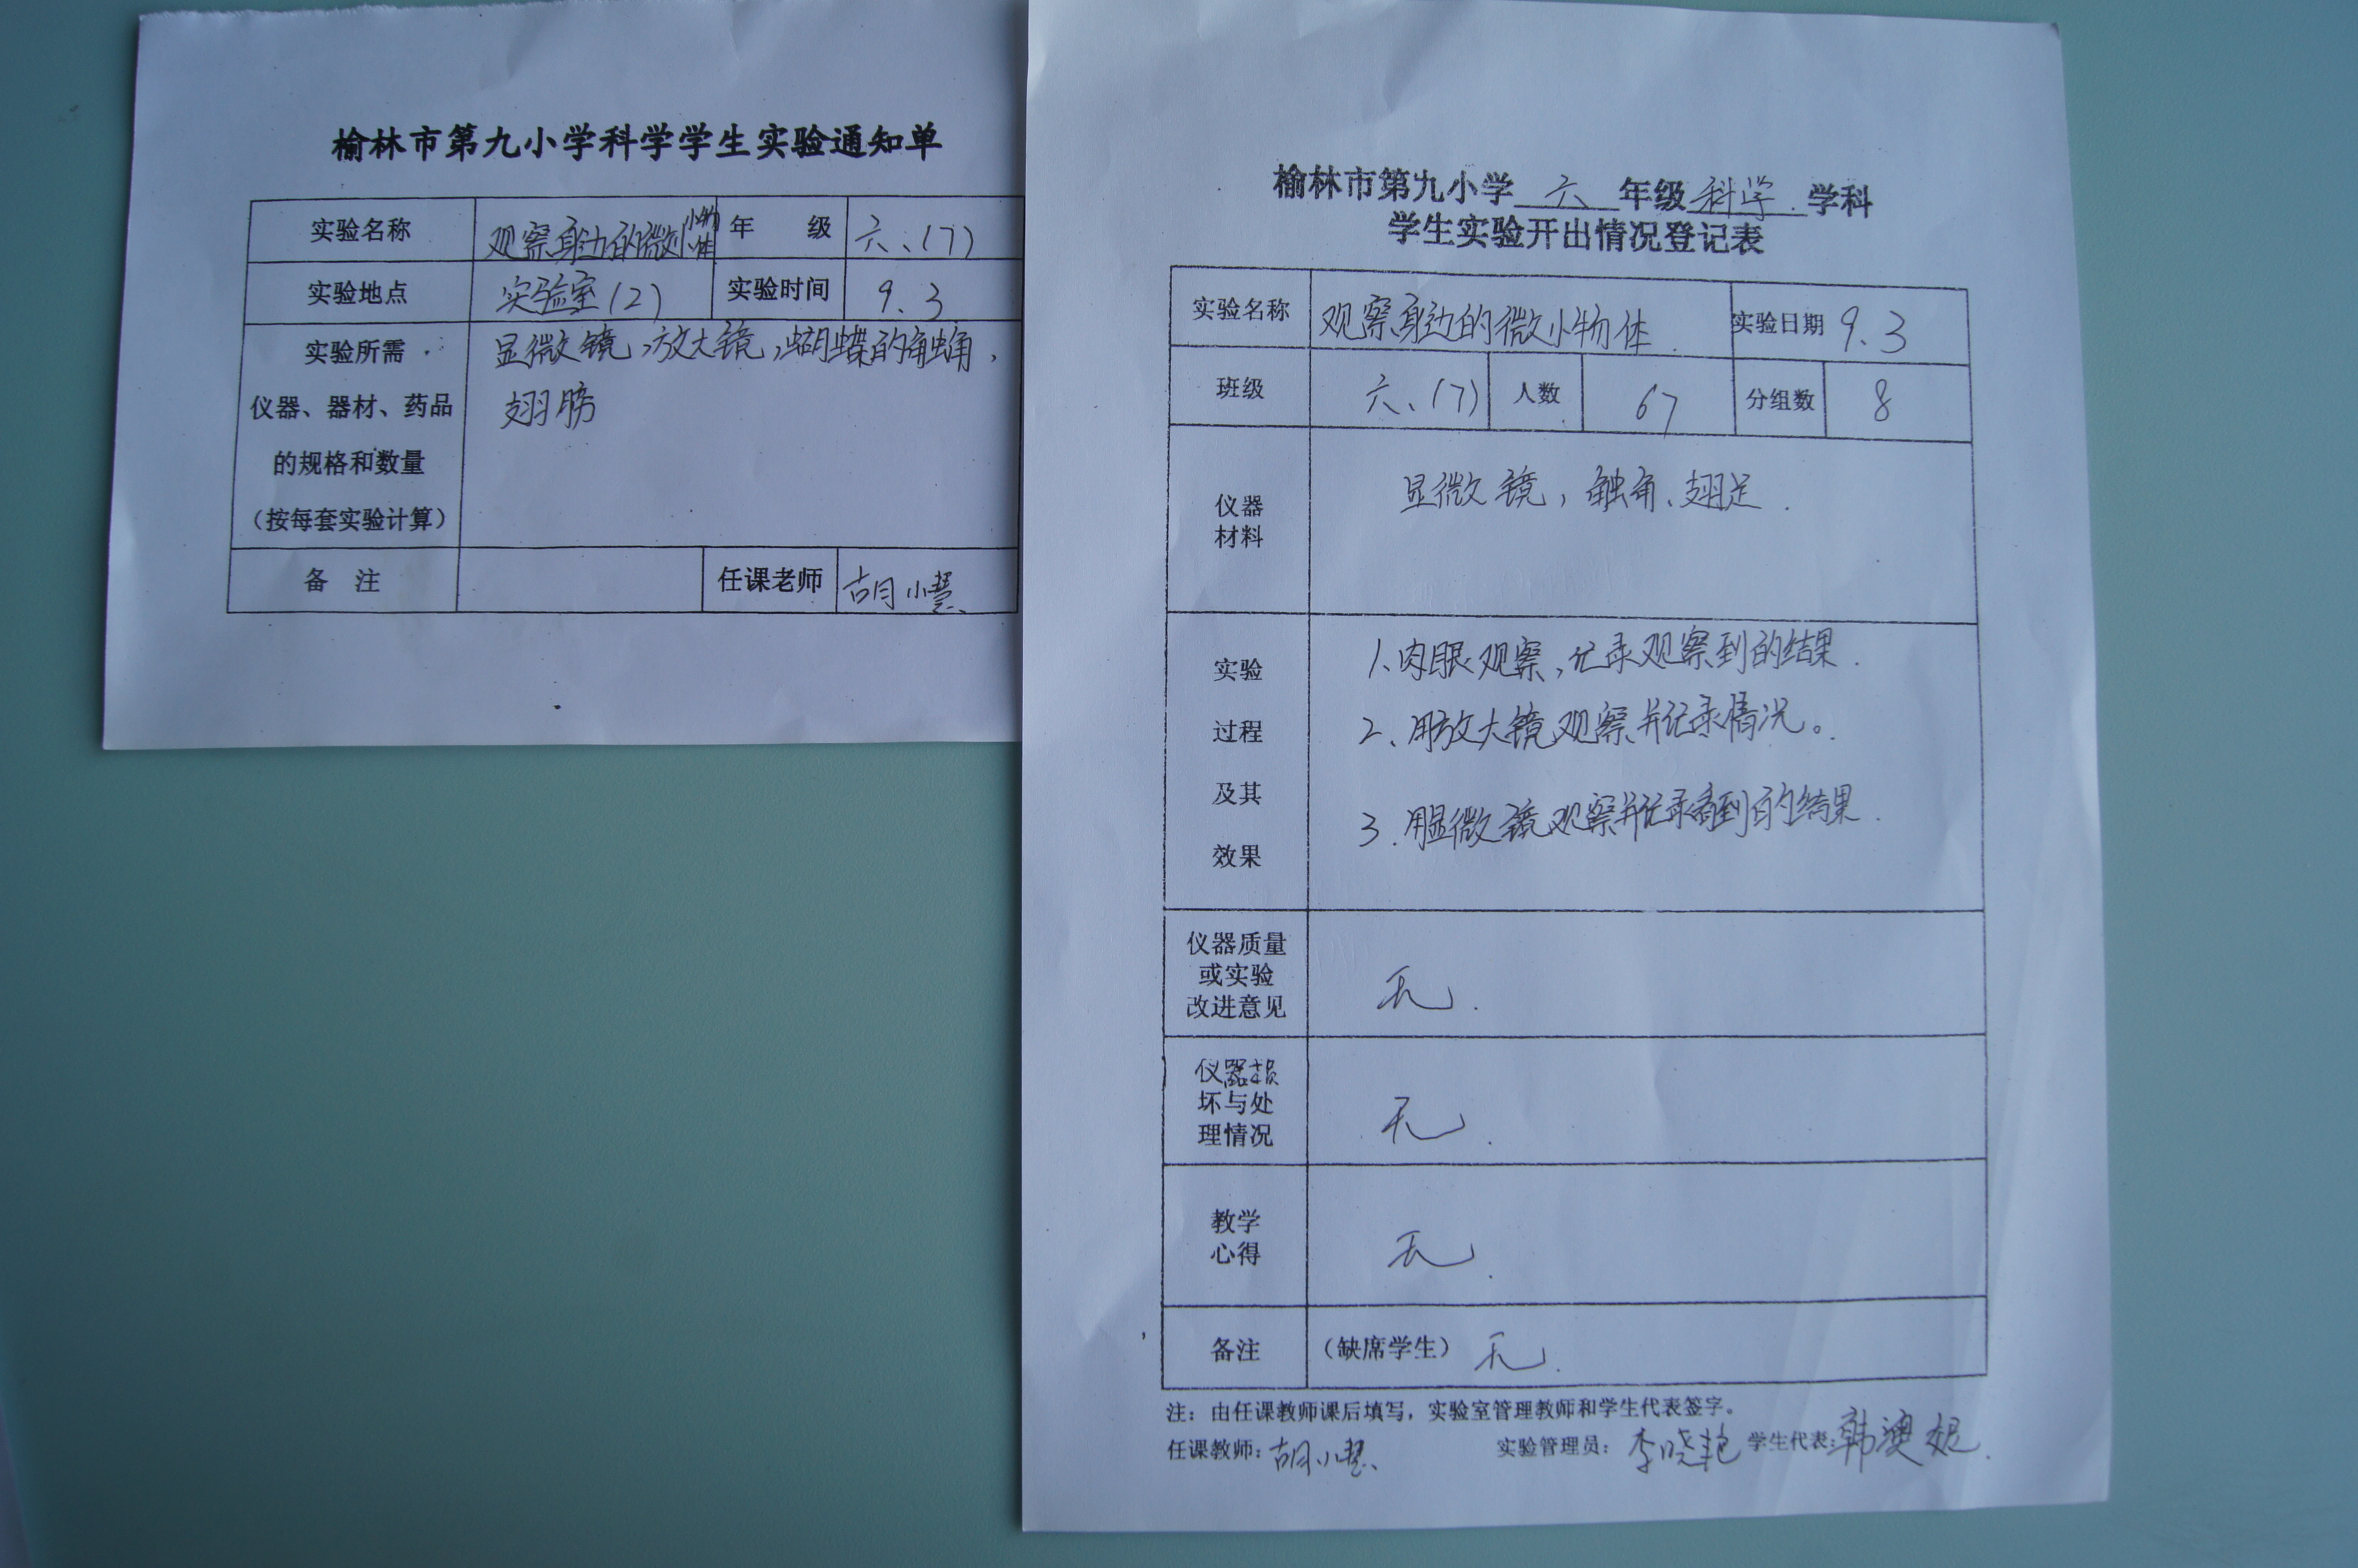 榆林市第九小学科学学生实验通知单
实验名称 观察身边的微小物体 年 级 六、(7)
实验地点 实验室(2) 实验时间 9.3
实验所需 显微镜,放大镜,蝴蝶的触角,
仪器、器材、药品 翅膀
的规格和数量
(按每套实验计算)
备 注 任课老师 胡小慧
榆林市第九小学 六 年级 科学. 学科
学生实验开出情况登记表
实验名称 观察身边的微小物体. 实验日期 9.3
班级 六、(7) 人数 67 分组数 8
仪器
材料
显微镜,触角、翅足.
实验
过程
及其
效果
1、肉眼观察,记录观察到的结果.
2、用放大镜观察并记录情况。
3.用显微镜观察并记录看到的结果.
仪器质量
或实验
改进意见
无.
仪器损
坏与处
理情况
无.
教学
心得
无.
备注 (缺席学生) 无.
注:由任课教师课后填写,实验室管理教师和学生代表签字。
任课教师:胡小慧 实验管理员:李晓艳 学生代表:韩澳妮.